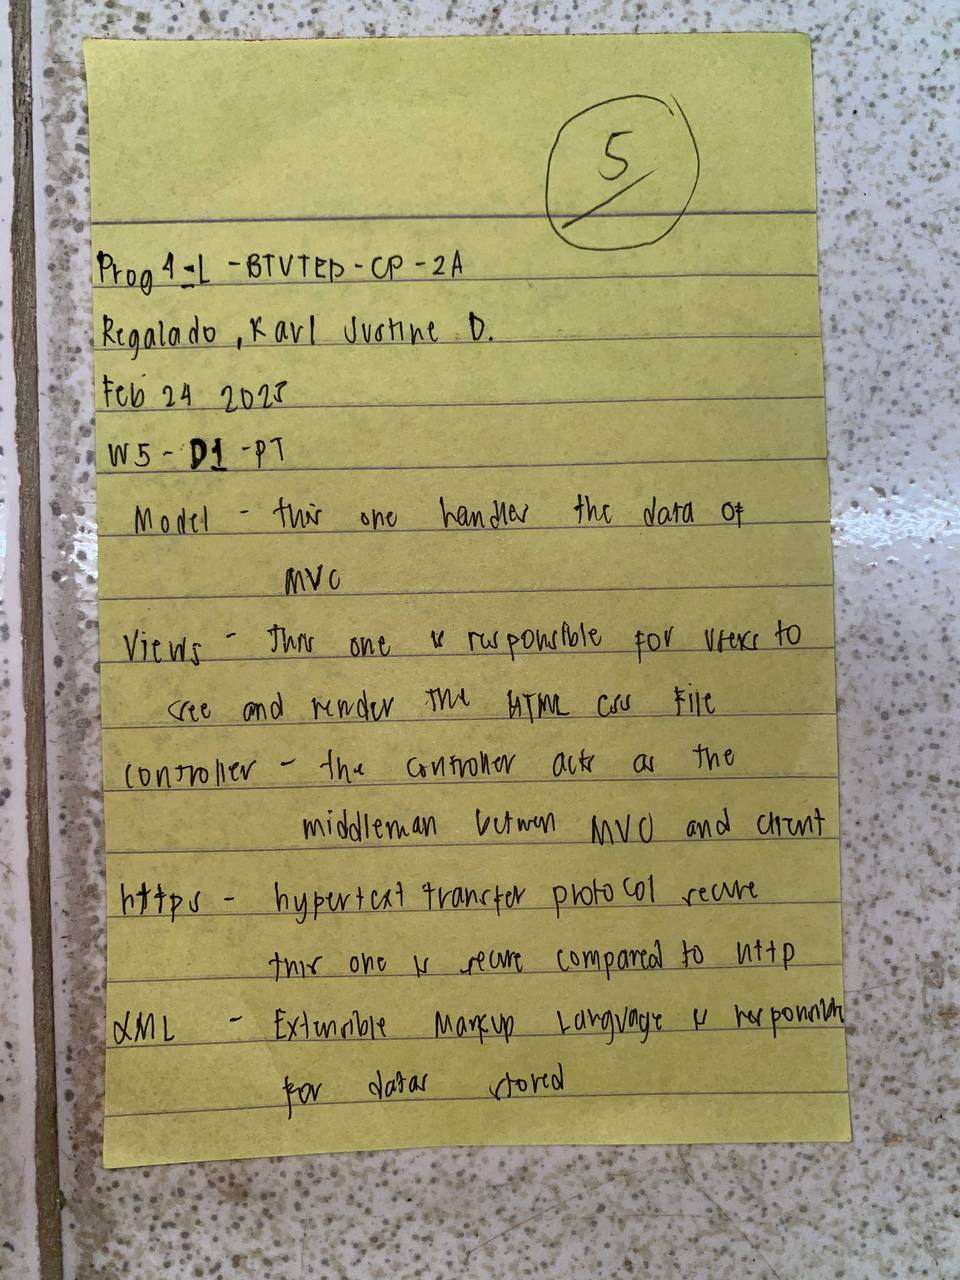 5
Prog 1-L - BTVTED - CP - 2A
Regalado, Karl Justine D.
Feb 24 2025
W5 - D1 - PT
Model - this one handles the data of
MVC
Views - this one is responsible for users to
see and render the HTML css File
controller - the controller acts as the
middleman between MVC and client
https - hypertext transfer protocol secure
this one is secure compared to http
XML - Extensible Markup Language is responsible
for datas stored